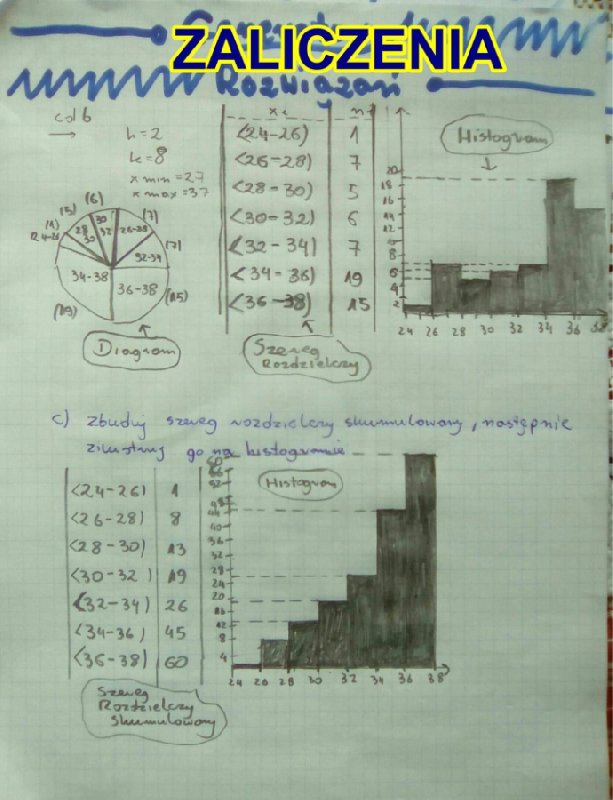 ZALICZENIA
Rozwiązań
cd b
h=2
k=8
x min = 27
x max = 37
(1) (5) (6) (7)
24-26 28 30 30 32 26-28
(7)
32-34
34-38 36-38
(19) (15)
Diagram
xi ni
<24-26) 1
<26-28) 7
<28-30) 5
<30-32) 6
<32-34) 7
<34-36) 19
<36-38) 15
Szereg
Rozdzielczy
Histogram
20
18
16
14
12
8
6
4
2
24 26 28 30 32 34 36 38
c) Zbuduj szereg rozdzielczy skumulowany, następnie
zilustruj go na histogramie
<24-26) 1
<26-28) 8
<28-30) 13
<30-32) 19
<32-34) 26
<34-36) 45
<36-38) 60
Szereg
Rozdzielczy
Skumulowany
Histogram
60
56
52
48
44
40
36
32
28
24
20
16
12
4
24 26 28 30 32 34 36 38